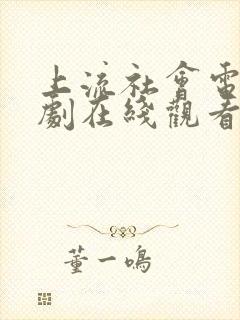 上流社會電
劇在綫觀看
董一鳴